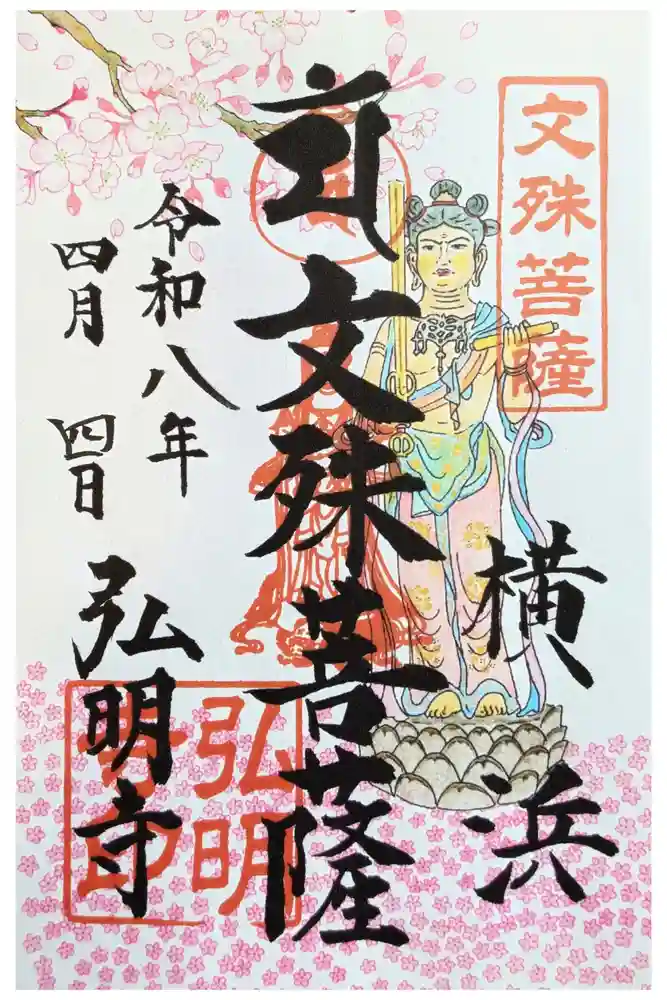 文殊菩薩
横浜
文殊菩薩
令和八年
四月 四日
弘明寺
弘明寺印